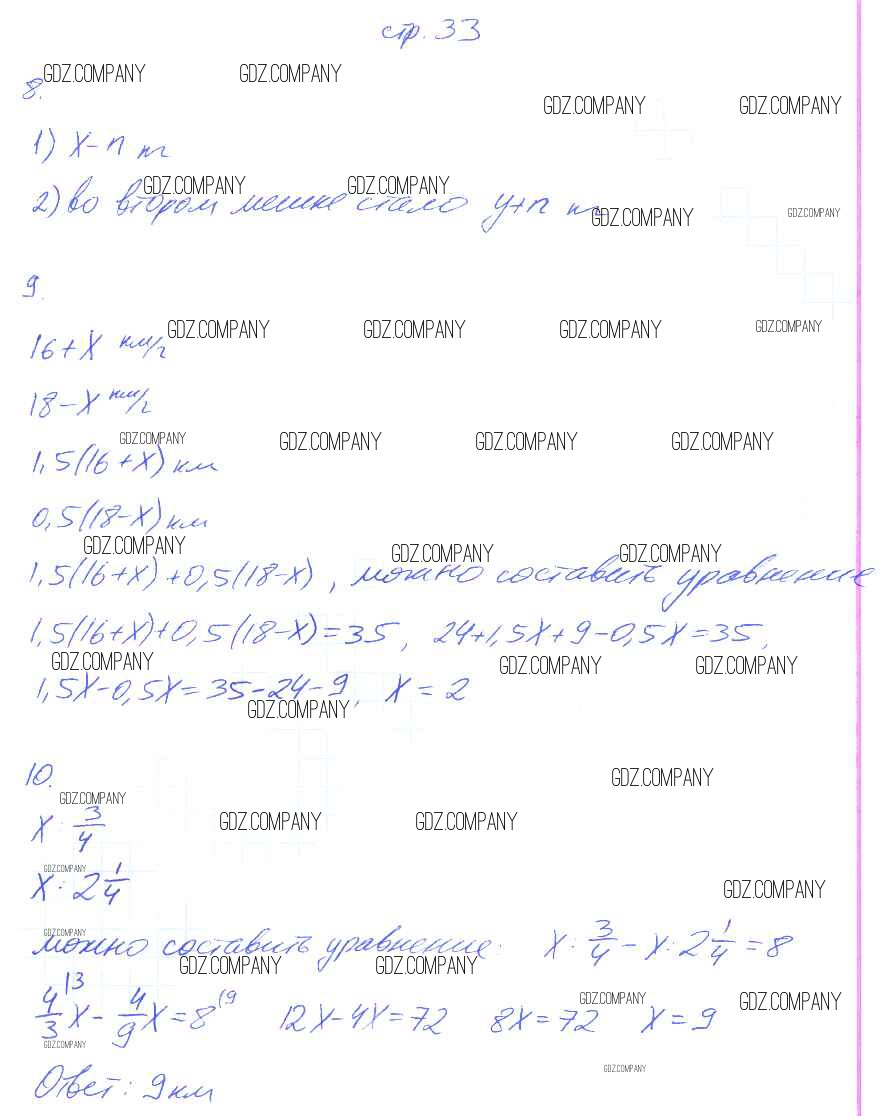 стр. 33
GDZ.COMPANY GDZ.COMPANY
8.
GDZ.COMPANY GDZ.COMPANY
1) x-n кг
GDZ.COMPANY GDZ.COMPANY
2) во втором мешке стало y+n кг
GDZ.COMPANY GDZ.COMPANY
9.
GDZ.COMPANY GDZ.COMPANY GDZ.COMPANY GDZ.COMPANY
16+x км/г
18-x км/г
GDZ.COMPANY GDZ.COMPANY GDZ.COMPANY GDZ.COMPANY
1,5(16+x) км
0,5(18-x) км
GDZ.COMPANY GDZ.COMPANY GDZ.COMPANY
1,5(16+x)+0,5(18-x), можно составить уравнение
1,5(16+x)+0,5(18-x)=35, 24+1,5x+9-0,5x=35,
GDZ.COMPANY GDZ.COMPANY GDZ.COMPANY
1,5x-0,5x=35-24-9, x=2
GDZ.COMPANY
10.
GDZ.COMPANY
GDZ.COMPANY GDZ.COMPANY GDZ.COMPANY
x : 3/4
GDZ.COMPANY GDZ.COMPANY
x : 2 1/4
GDZ.COMPANY
можно составить уравнение: x : 3/4 - x : 2 1/4 = 8
GDZ.COMPANY GDZ.COMPANY
GDZ.COMPANY GDZ.COMPANY
4/3 |3 x - 4/9 x = 8 |9 12x-4x=72 8x=72 x=9
GDZ.COMPANY
GDZ.COMPANY
Ответ: 9 км